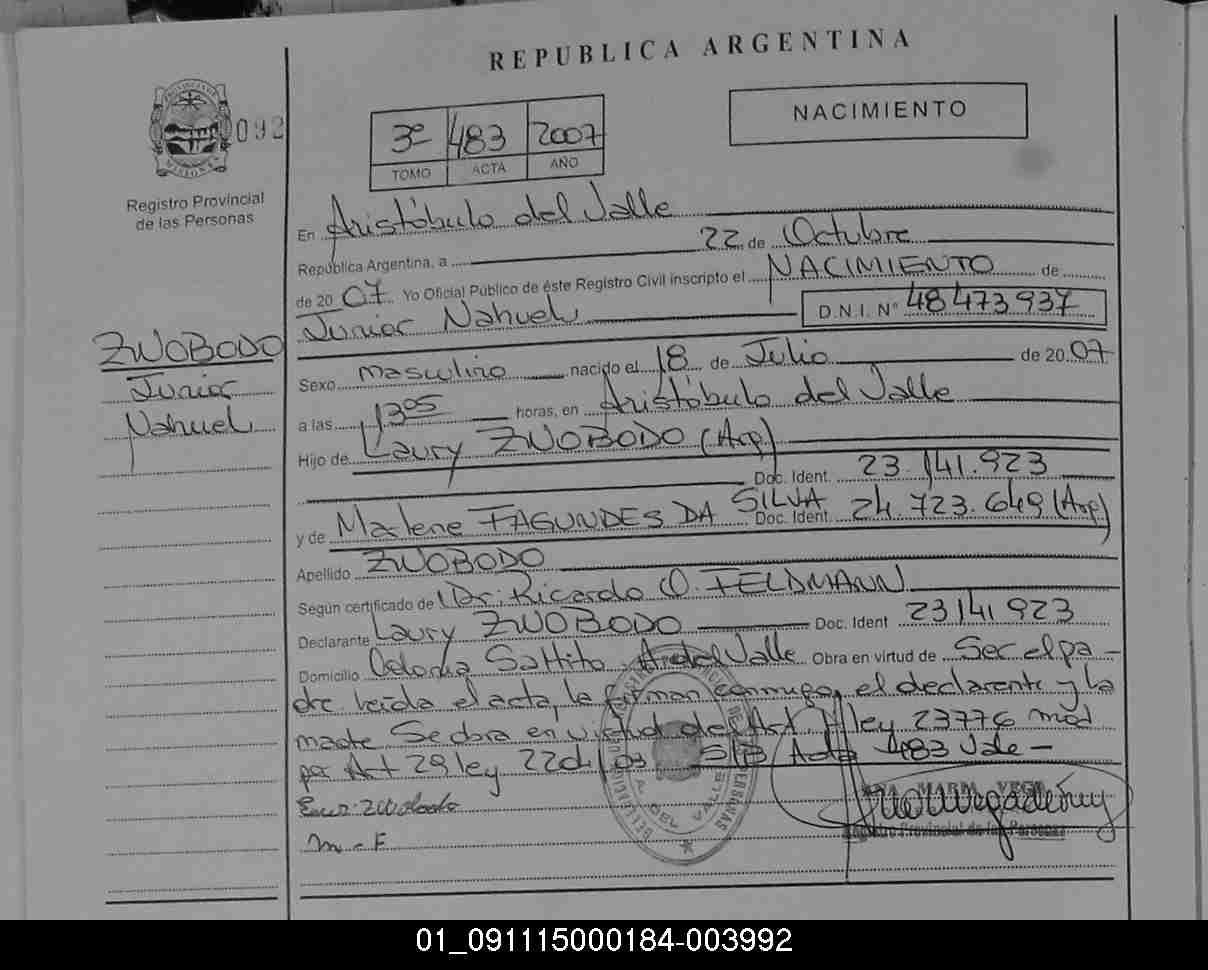 REPUBLICA ARGENTINA
092
NACIMIENTO
3º 483 2007
TOMO ACTA AÑO
Registro Provincial
de las Personas
En Aristóbulo del Valle
República Argentina, a 22 de Octubre
de 2007 Yo Oficial Público de éste Registro Civil inscripto el NACIMIENTO de
Junior Nahuel D.N.I. Nº 48473937
ZWOBODO
Junior
Nahuel
Sexo masculino nacido el 18 de Julio de 2007
a las 13 05 horas, en Aristóbulo del Valle
Hijo de Laury ZWOBODO (Arg)
Doc. Ident. 23.141.923
y de Marlene FAGUNDES DA SILVA Doc. Ident 24.723.649 (Arg)
Apellido ZWOBODO
Según certificado de Dr: Ricardo O. FELDMANN
Declarante Laury ZWOBODO Doc. Ident 23141923
Domicilio Colonia Saltito A. del Valle Obra en virtud de Ser el pa-
dre leída el acta, la firman conmigo, el declarante y la
madre Se labra en virtud del Art ley 23776 mod
por Art 29 ley S/B Acta 483 Vale-
MARIA VEGA
Registro Provincial de las Personas
M-F
01_091115000184-003992